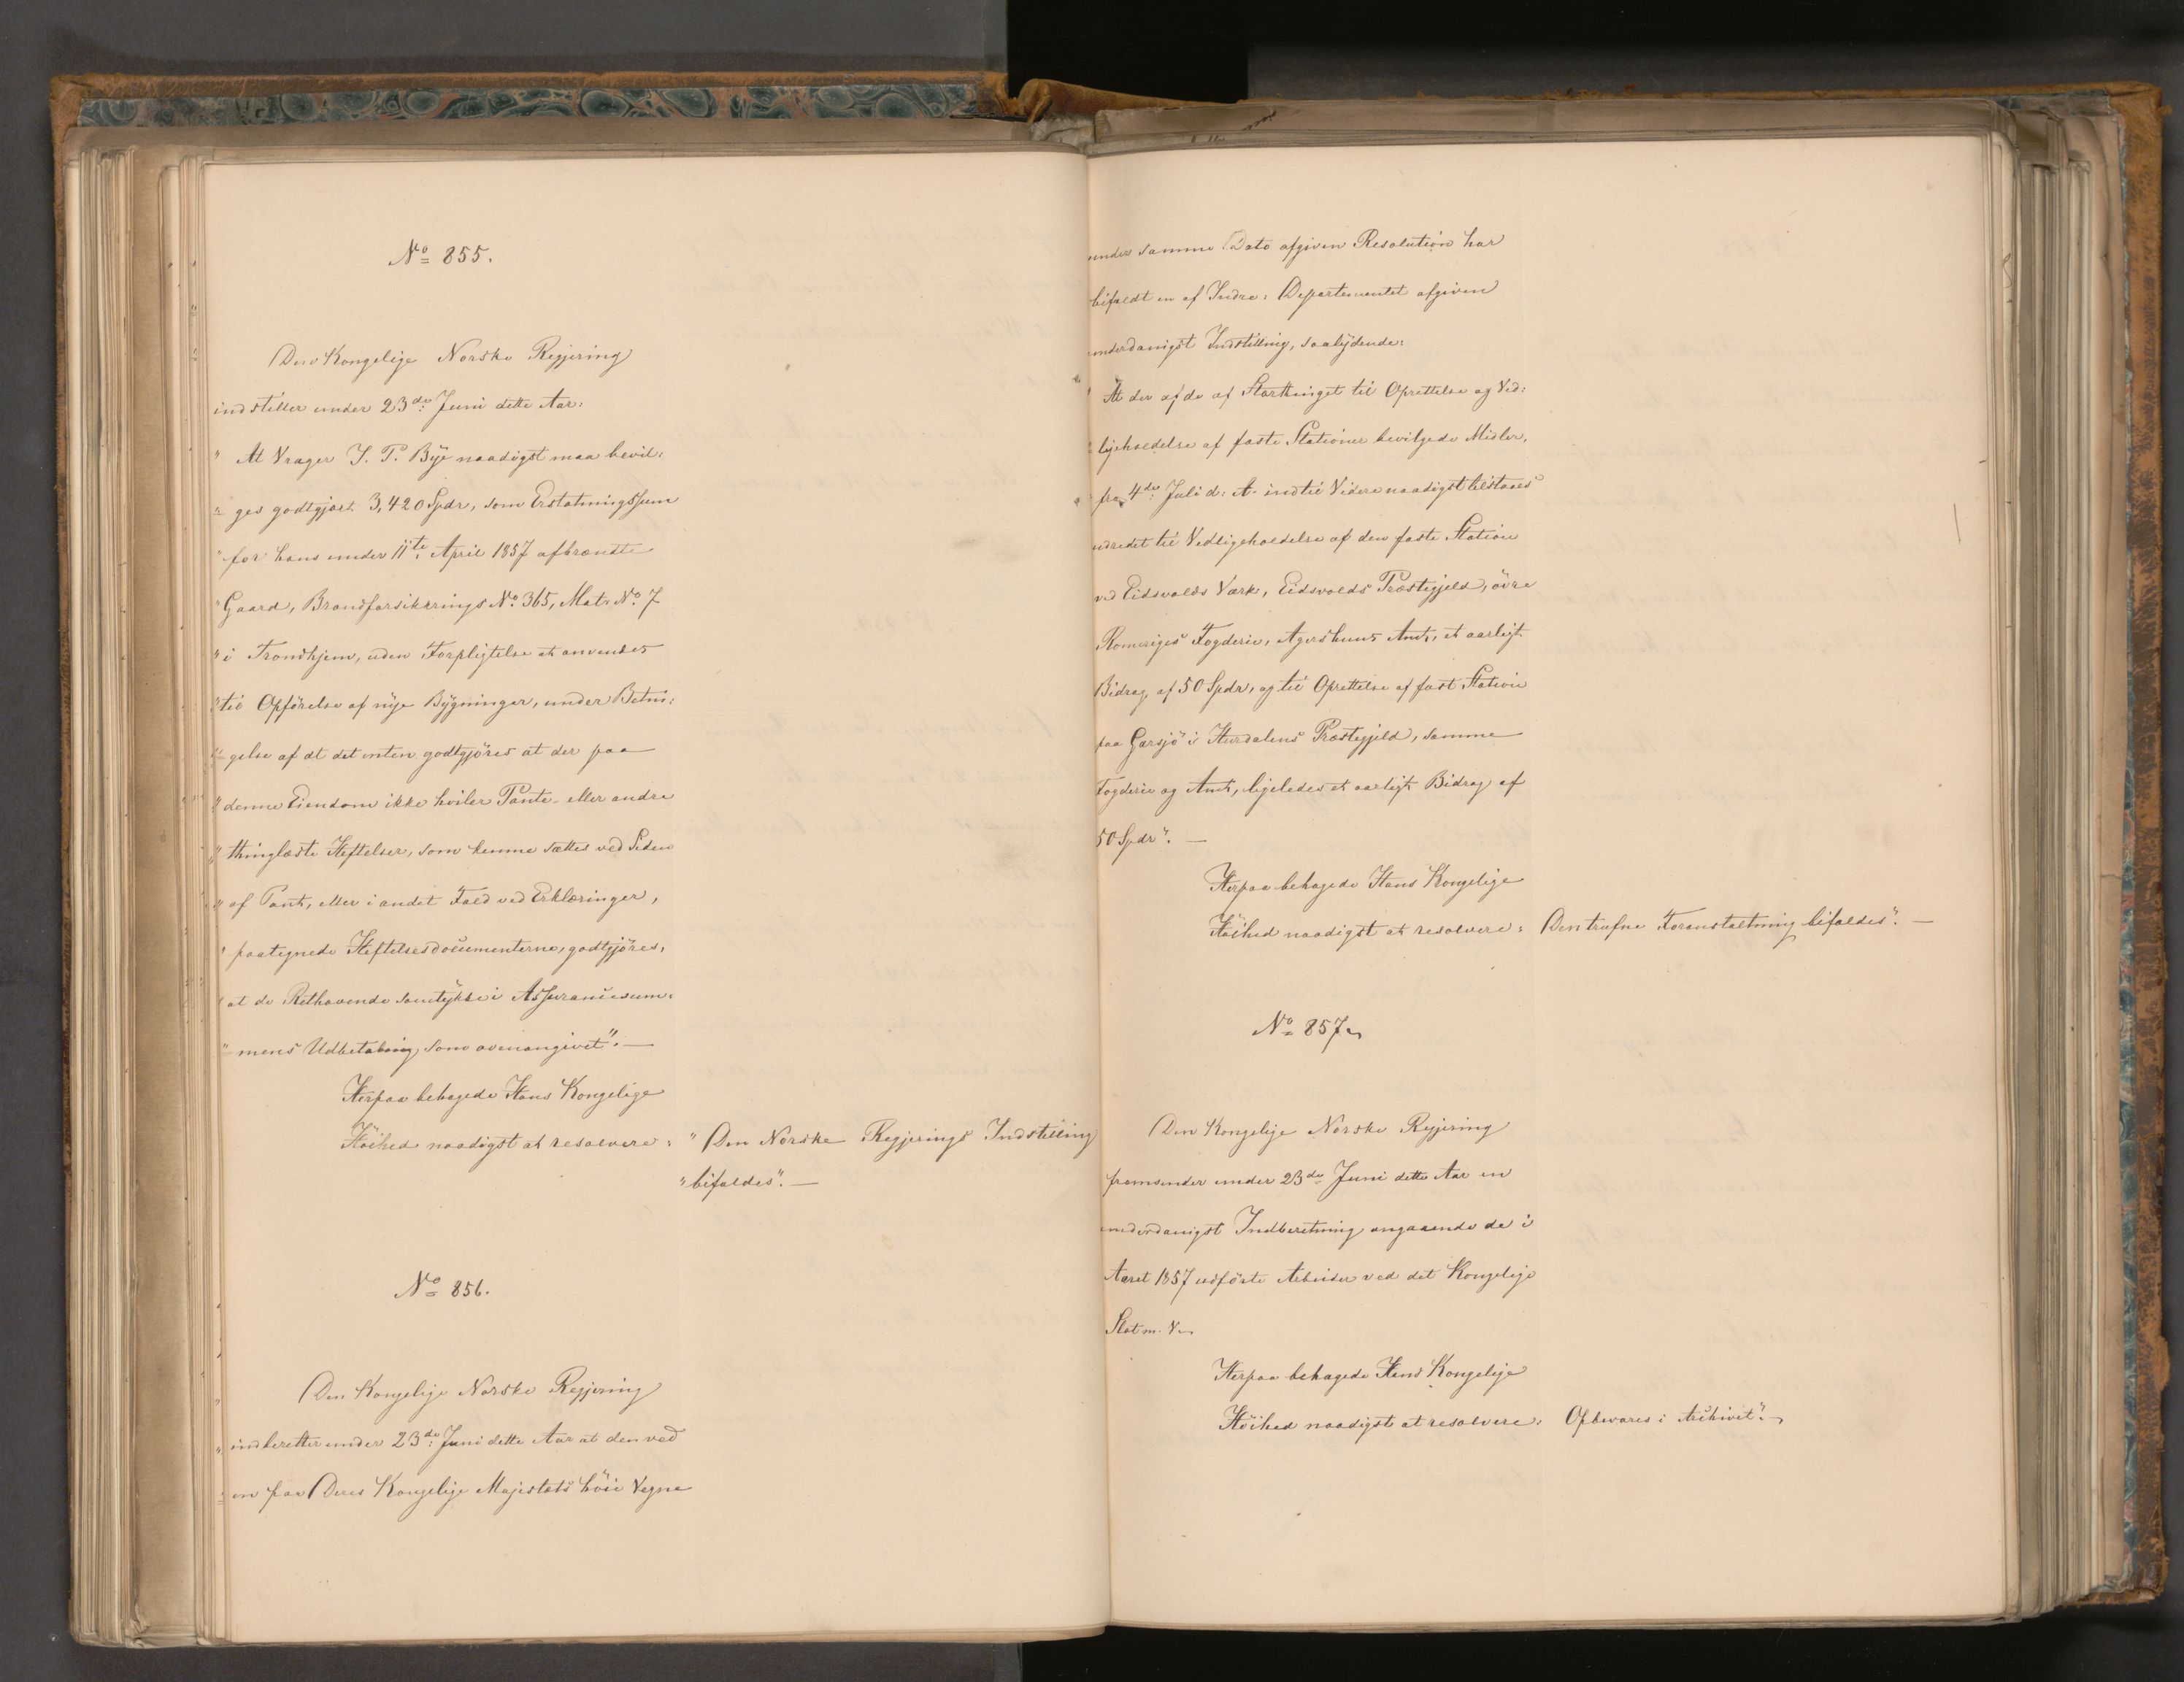 No 855.
Den Kongelige Norske Regjering
indstiller under 23de Juni dette Aar:
" At Vrager J. P. Bÿe naadigst maa bevil:
" ges godtgjort 3,420 Spdr, som Erstatningssum
" for hans under 11te April 1857 afbrændte
" Gaard, Brandforsikrings No 365, Matr No 7
" i Trondhjem, uden Forpligtelse at anvendes
" til Opförelse af nÿe Bÿgninger, under Betin:
" gelse af at det enten godtgjöres at der paa
" denne Eiendom ikke hviler Pante- eller andre
" thinglæste Heftelser, som kunne sættes ved Siden
" af Pant, eller i andet Fald ved Erklæringer,
" paategnede Heftelsesdocumenterne, godtgjöres,
" at de Rethavende samtÿkke i Assurancesum:
" mens Udbetaling som ovenangivet". —
Herpaa behagede Hans Kongelige
Höihed naadigst at resolvere: " Den Norske Regjerings Indstilling
" bifaldes". —
No 856.
Den Kongelige Norske Regjering
" indberetter under 23de Juni dette Aar at den ved
" en paa Deres Kongelige Majestæts höie Vegne
under samme Dato afgiven Resolution har
bifaldt en af Indre: Departementet afgiven
underdanigst Indstilling, saalÿdende:
" At der af de af Storthinget til Oprettelse og Ved:
" ligeholdelse af faste Stationer bevilgede Midler,
fra 4de Juli d: A. indtil Videre naadigst tilstaaes
udredet til Vedligeholdelse af den faste Station
ved Eidsvolds Værk, Eidsvolds Præstegjeld, övre
Romeriges Fogderie, Agershuus Amt, et aarligt
Bidrag af 50 Spdr, og til Oprettelse af fast Station
paa Garsjö i Hurdalens Præstegjeld, samme
Fogderie og Amt, ligeledes et aarligt Bidrag af
50 Spdr". —
Herpaa behagede Hans Kongelige
Höihed naadigst at resolvere: Den trufne Foranstaltning bifaldes". —
No 857
Den Kongelige Norske Regjering
fremsender under 23de Juni dette Aar en
underdanigst Indberetning angaaende de i
Aaret 1857 udförte Arbeider ved det Kongelige
Slot m. V.
Herpaa behagede Hans Kongelige
Höihed naadigst at resolvere: Opbevares i Archivet".